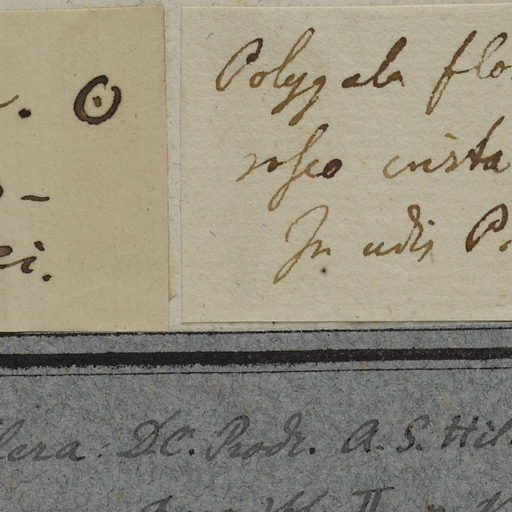 . ⊙
-
ei.
Polygala flo
roseo crista
In udis P
lera. DC. Prodr. A. S. Hil
II